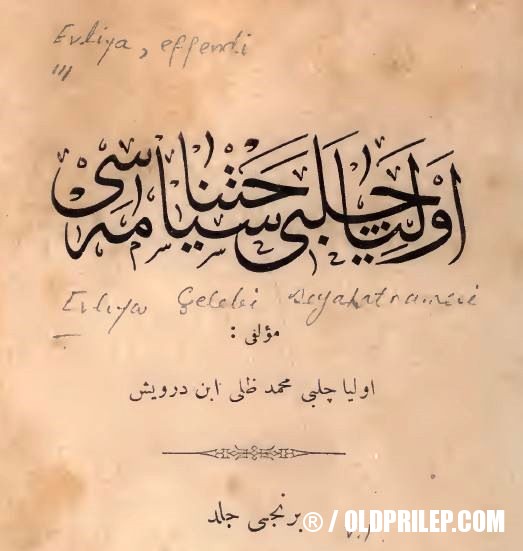 Evliya, effendi
"'
اوليا چلبى سياحتنامه سى
Evliya Çelebi Seyahatnamesi
مؤلفى :
اوليا چلبى محمد ظلى ابن درويش
برنجى جلد
® / OLDPRILEP.COM